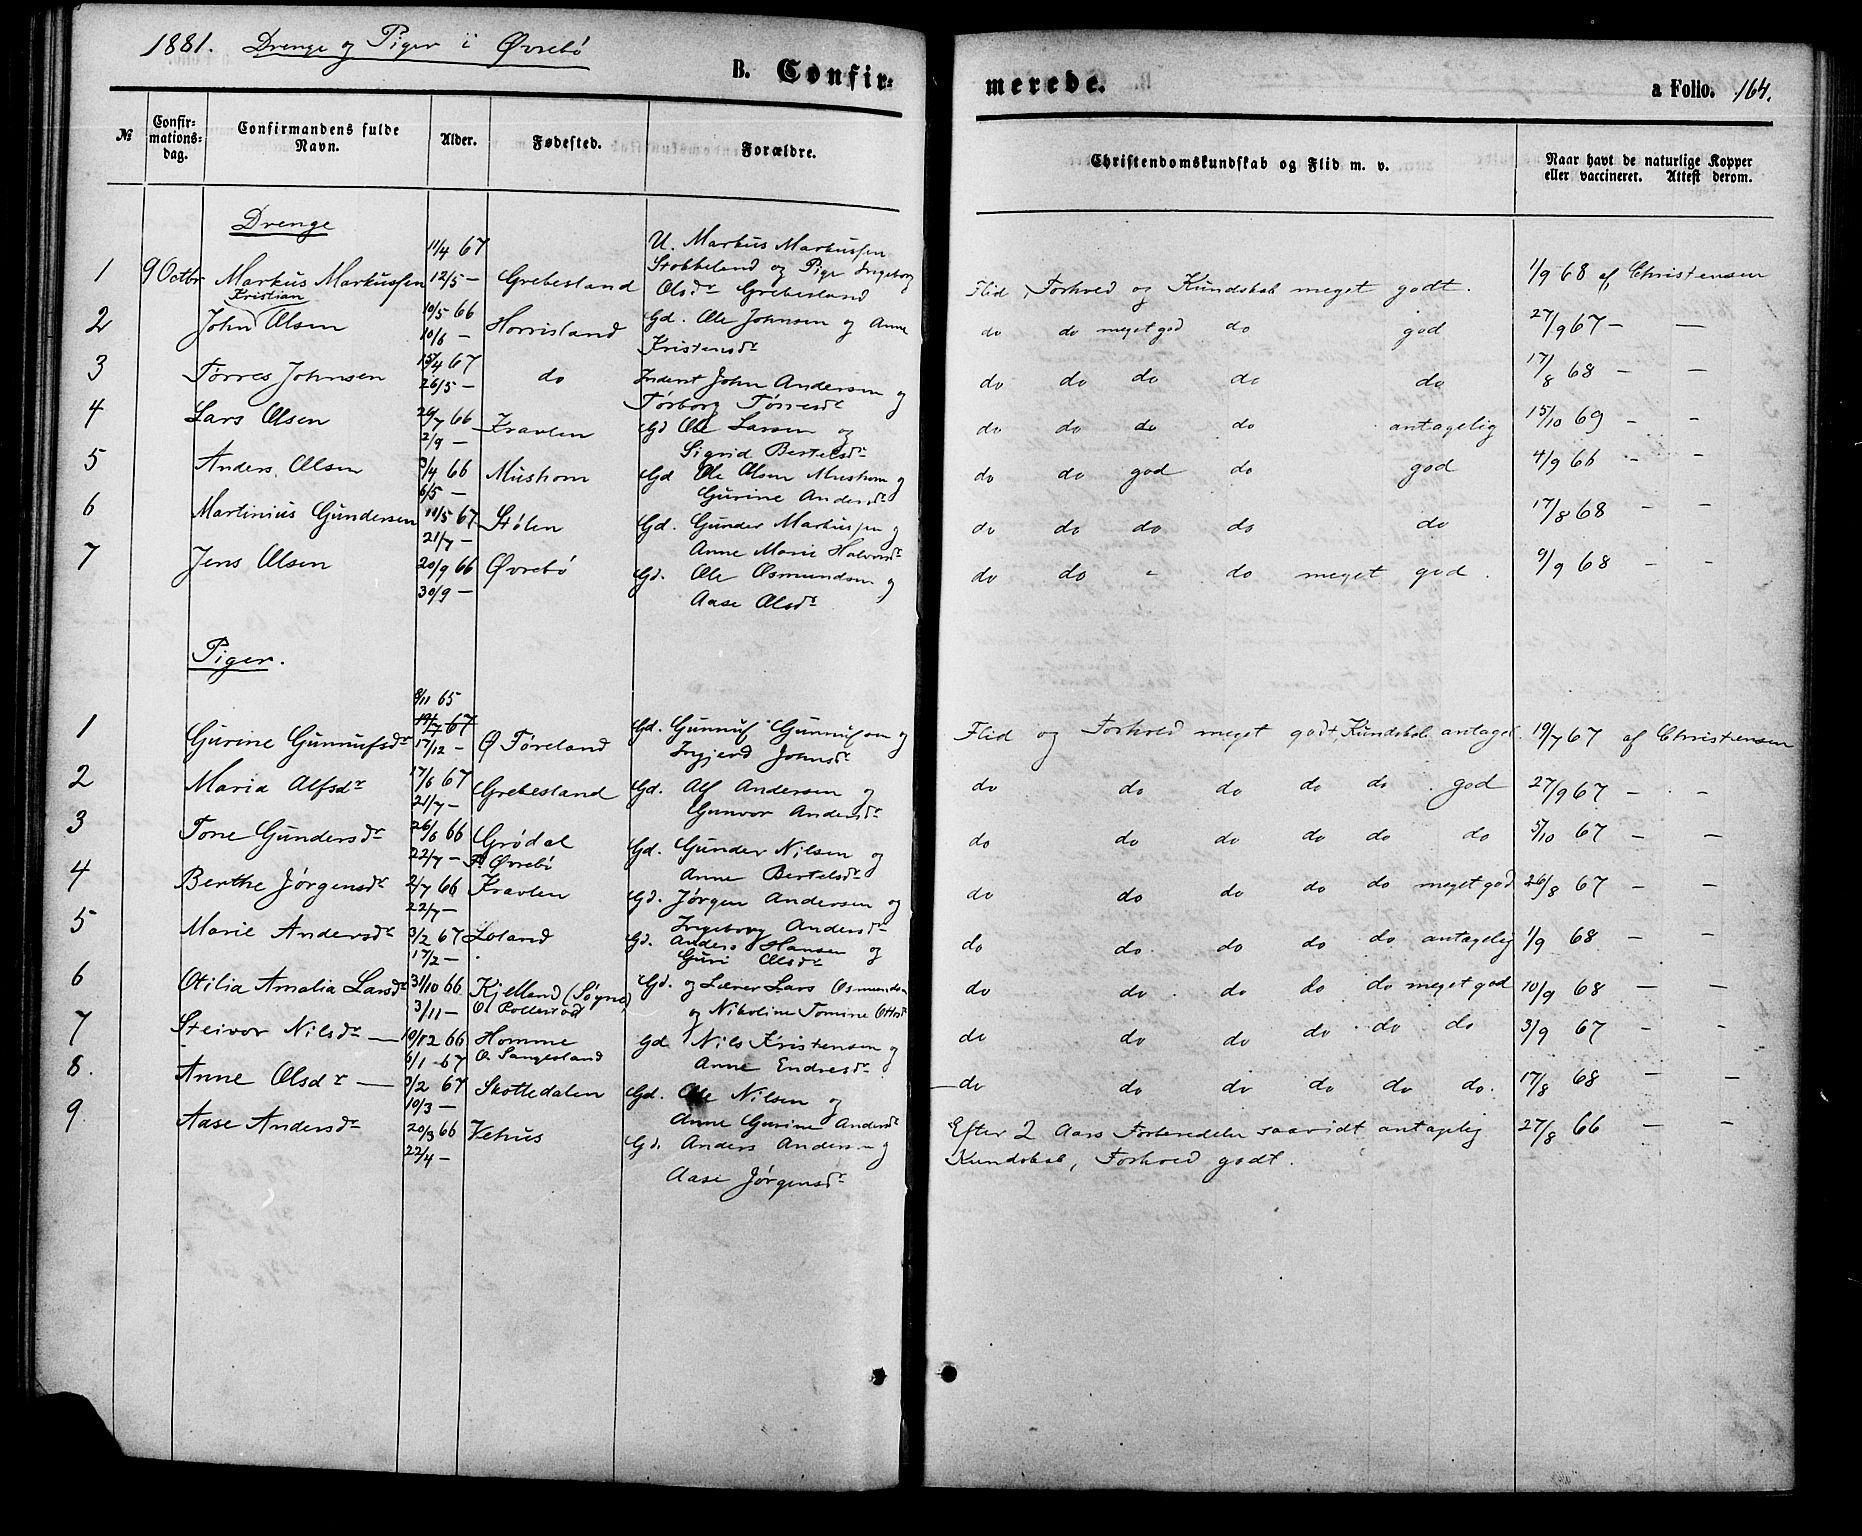 1881. Drenge og Piger i Øvrebö
B. Confirmerede.
a Folio. 164.
№ Confirmationsdag. Confirmandens fulde Navn. Alder. Fødested. Forældre. Christendomskundskab og Flid m. v. Naar havt de naturlige Kopper eller vaccineret. Attest derom.
Drenge
11/4 67 U. Markus Markussen
1 9 Octbr Markus Markussen 12/5 – Grebesland Stobbeland og Pige Ingeborg Olsdr Grebesland Flid, Forhold og Kundskab meget godt. 1/9 68 af Christensen
Kristian
2 John Olsen 10/5 66 10/6 – Horrisland Gd. Ole Johnsen og Anne Kristensdr do do meget god do god 27/9 67 – —
3 Torres Johnsen 15/4 67 26/5 – do Inderst John Andersen og Torborg Torresdr do do do do do 17/8 68 – —
4 Lars Olsen 26/7 66 2/9 – Kravlen Gd Ole Larsen og Sigrid Bertelsdr do do do do antagelig 15/10 69 – –
5 Anders Olsen 3/4 66 6/5 – Mushom Gd Ole Olsen Mushom og Gurine Andersdr do do god do god 4/9 66 – –
6 Martinius Gundersen 11/5 67 21/7 – Stølen Gd. Gunder Markussen og Anne Marie Halvorsdr do do do do do 17/8 68 – –
7 Jens Olsen 20/9 66 30/9 – Øvrebø Gd. Ole Osmundsen og Aase Olsdr do do – do meget god. 9/9 68 – –
Piger.
8/11 65
19/7 67
1 Gurine Gunnufsdr 17/12 – Ø Føreland Gd. Gunnuf Gunnufson og Ingjerd Johnsdr Flid og Forhold meget godt, Kundskab antagel. 19/7 67 af Christensen
2 Maria Alfsdr 17/6 67 21/7 – Grebesland Gd. Alf Andersen og Gunvor Andersdr do do do do do god 27/9 67 – –
3 Tone Gundersdr 26/6 66 22/7 – Grødal Øvrebø Gd. Gunder Nilsen og Anne Bertelsdr do do do do do do 5/10 67 – –
4 Berthe Jørgensdr 2/7 66 22/7 – Kravlen Gd. Jørgen Andersen og Ingeborg Andersdr do do do do do meget god 26/8 67 – –
5 Marie Andersdr 3/2 67 17/2 – Loland Gd. Anders Hansen og Guri Olsdr do do do do do antagelig 1/9 68 – –
6 Otilia Amalia Larsdr 31/10 66 3/11 – Kjelland (Søgne) Gd. og Lærer Lars Osmundsen og Nikoline Tomine Ottosdr do do do do do meget god 10/9 68 – –
7 Steivor Nilsdr — 10/12 66 6/1 – 67 Homme O. Sangesland Gd. Nils Kristensen og Anne Endresdr do do do do do do 3/9 67 – –
8. Anne Olsdr — 9/2 67 10/3 – Skottedalen Gd. Ole Nilsen og Anne Gurine Andersdr do do do do do do. 17/8 68 – –
9 Aase Andersdr 20/3 66 22/4 – Vehus Gd. Anders Anders– og Aase Jørgensdr Efter 2 Aars Forberedelse saavidt antagelig Kundskab, Forhold godt. 27/8 66 – –